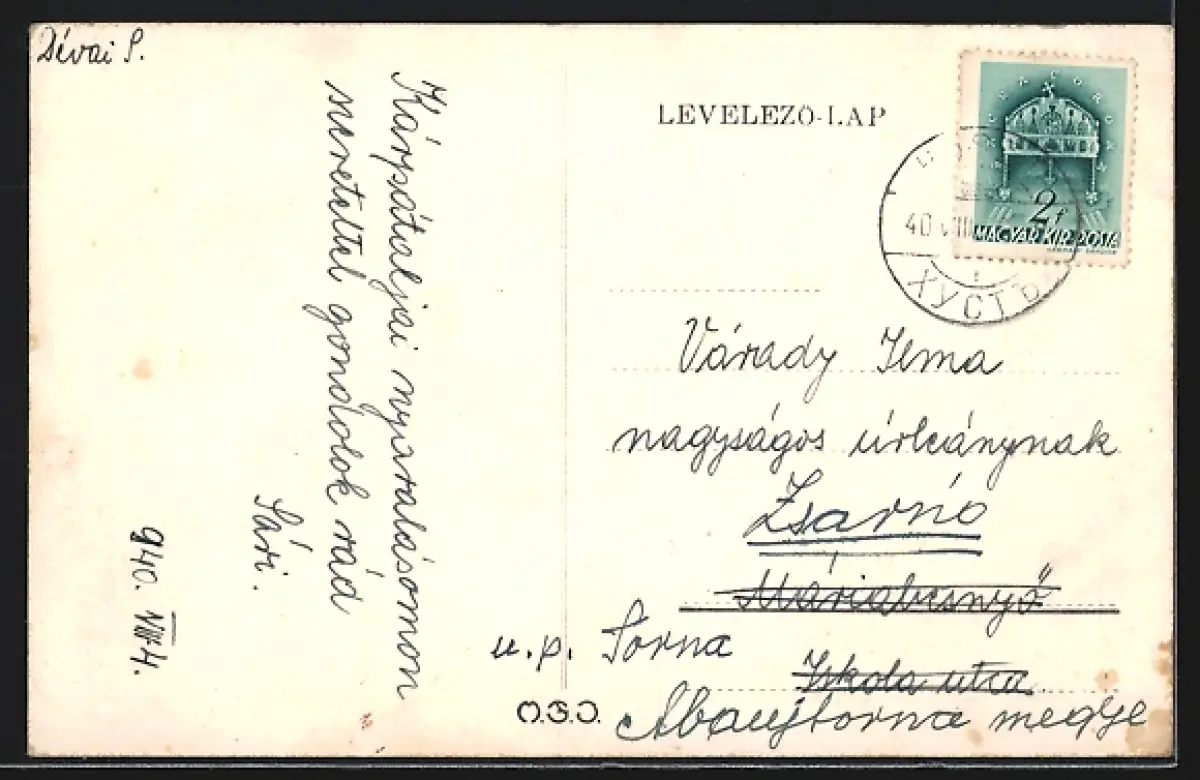 Dévai S.
LEVELEZŐ-LAP
2f
MAGYAR KIR. POSTA
40 VIII
ХУСТЪ
Kárpátaljai nyaralásomon
szeretettel gondolok rád
Sári.
940. VIII 4.
Várady Ilma
nagyságos úrleánynak
Zsarnó
Máriabesnyő
u.p. Torna
Iskola utca
Abaujtorna megye